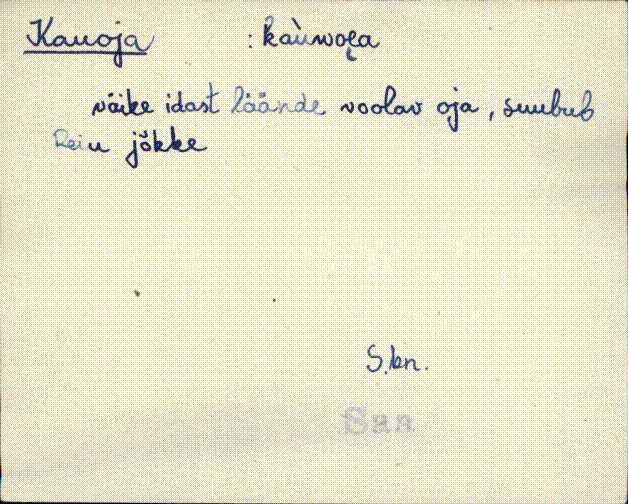 Kauoja : kàuwoɛa
väike idast läände voolav oja, suubub
Reiu jõkke
S.kn.
Saa